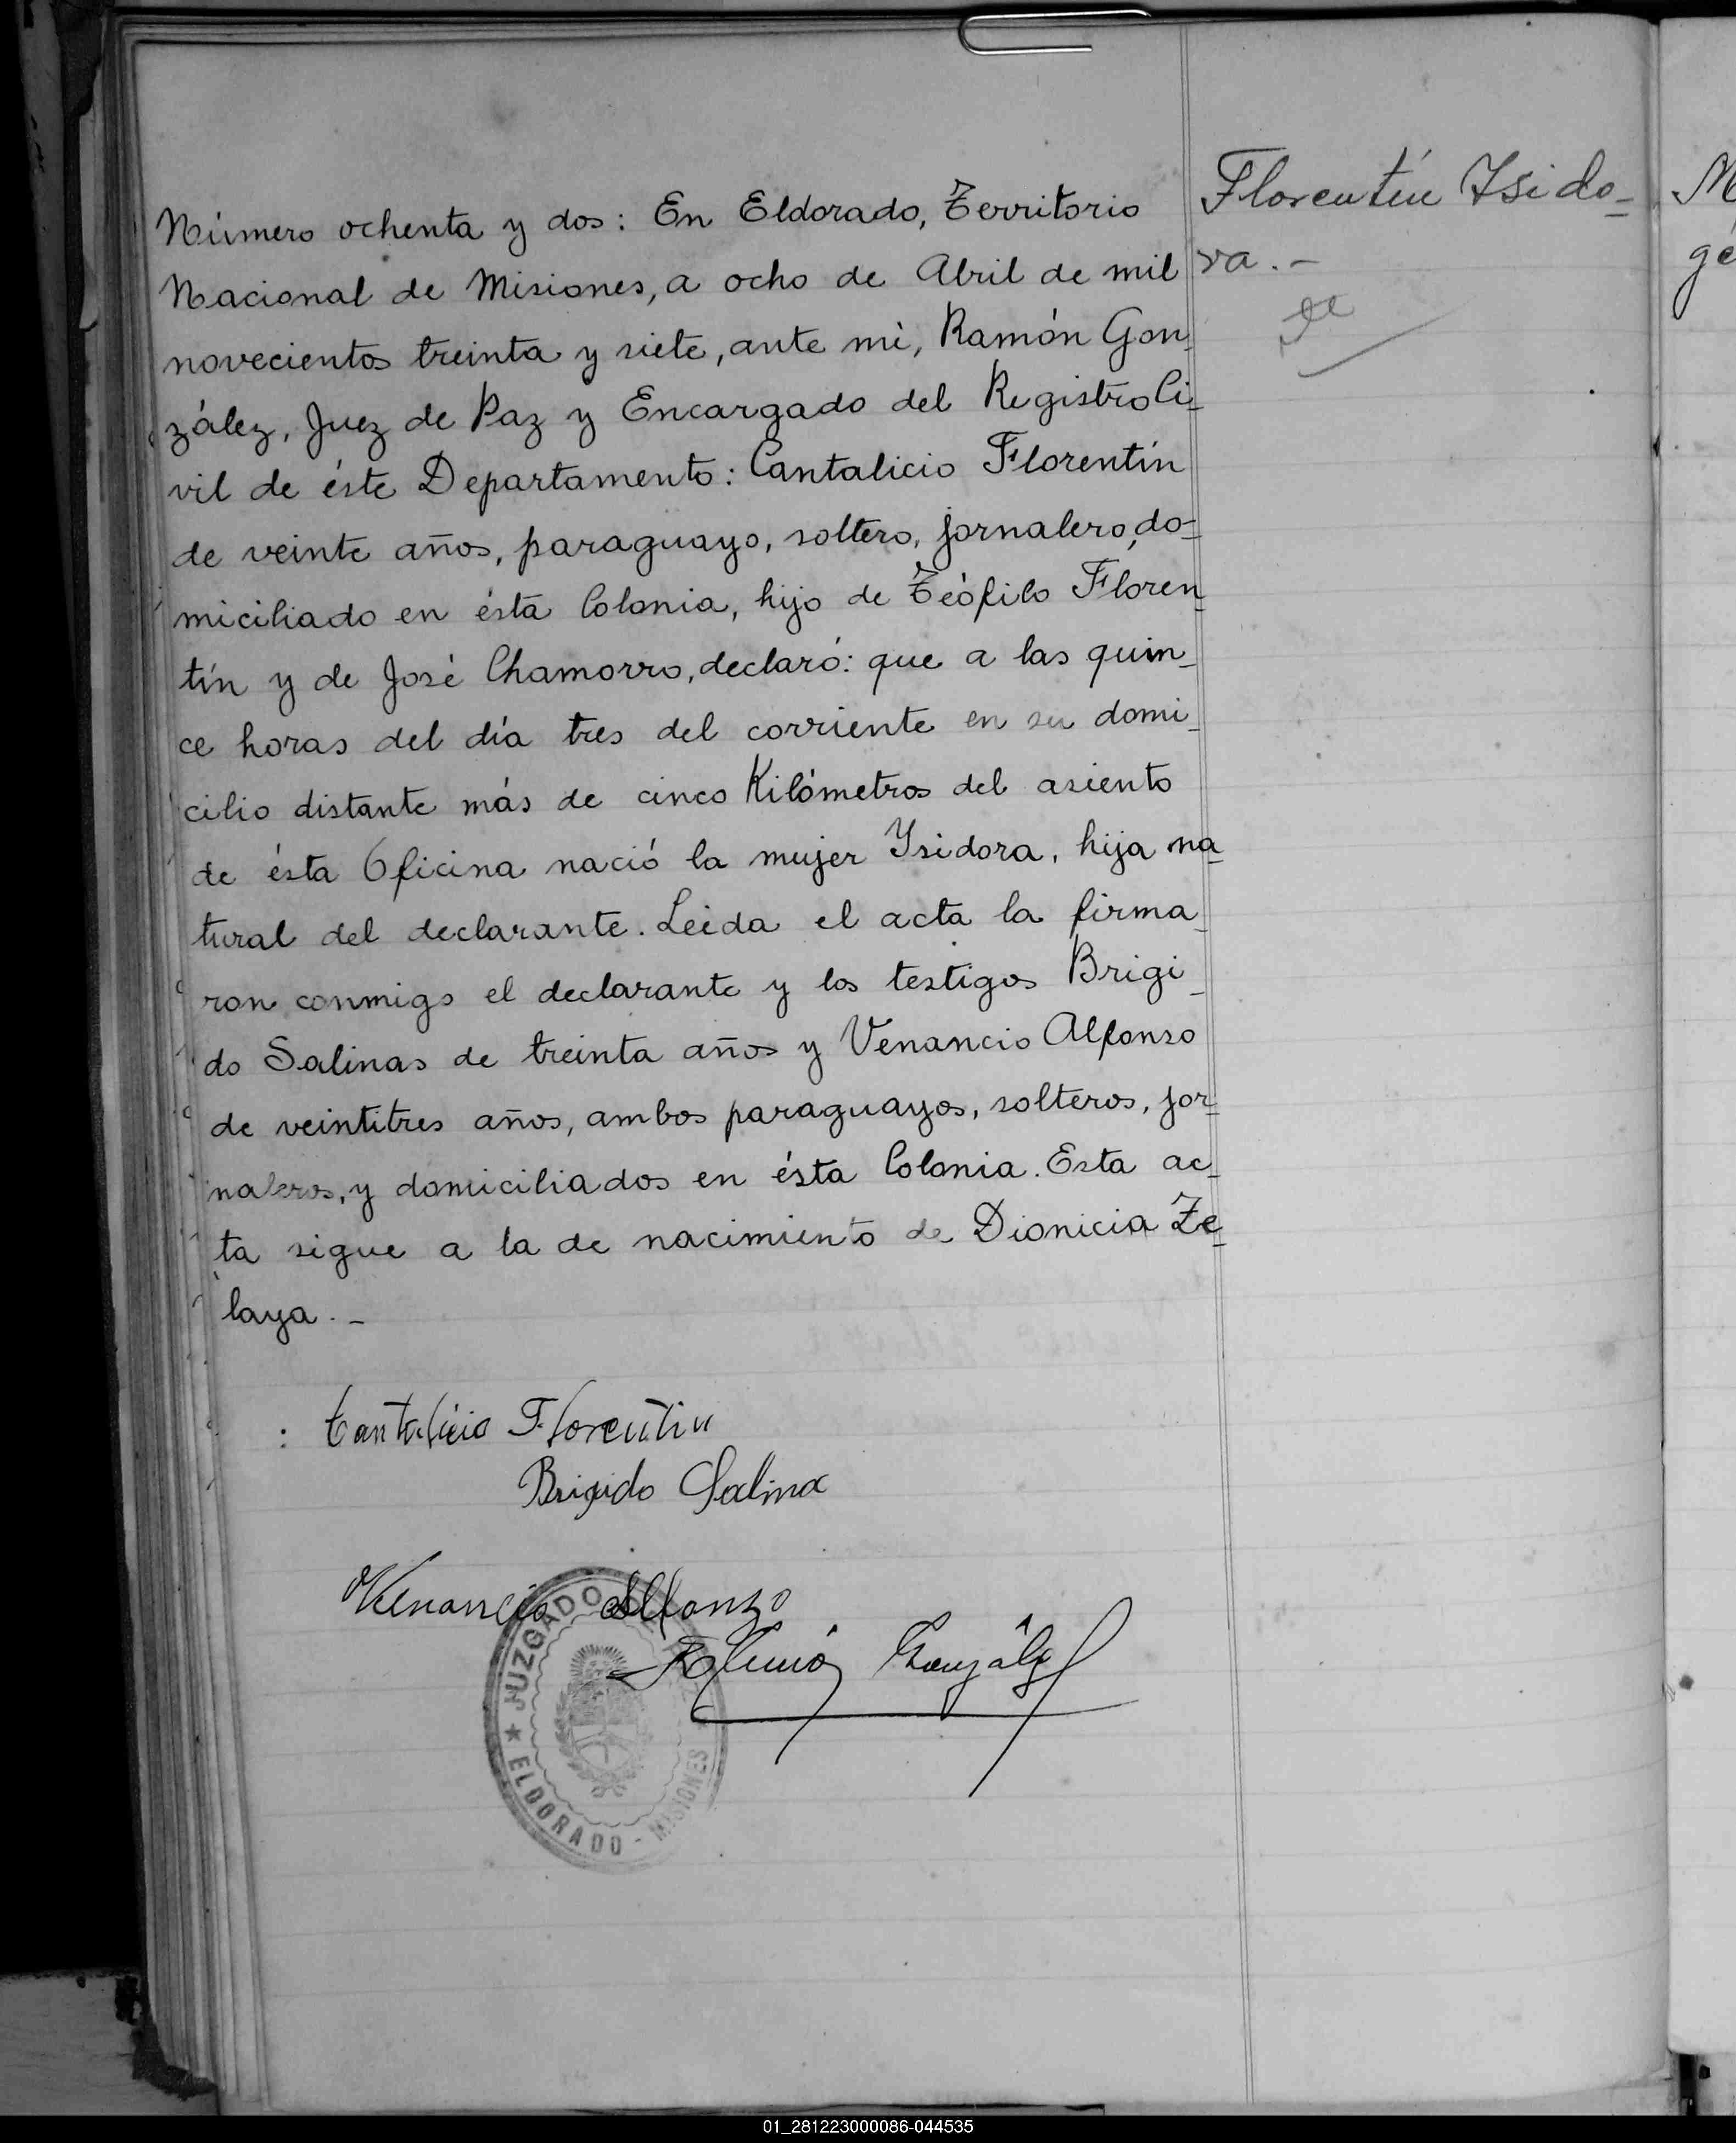 Número ochenta y dos: En Eldorado, Territorio
Nacional de Misiones, a ocho de Abril de mil
novecientos treinta y siete, ante mi, Ramón Gon_
zález, Juez de Paz y Encargado del Registro Ci_
vil de éste Departamento: Cantalicio Florentín
de veinte años, paraguayo, soltero, jornalero, do-
miciliado en ésta Colonia, hijo de Teófilo Floren_
tín y de José Chamorro, declaró: que a las quin_
ce horas del día tres del corriente en su domi_
cilio distante más de cinco Kilómetros del asiento
de ésta Oficina nació la mujer Ysidora, hija na_
tural del declarante. Leida el acta la firma_
ron conmigo el declarante y los testigos Brigi_
do Salinas de treinta años y Venancio Alfonso
de veintitres años, ambos paraguayos, solteros, jor_
naleros, y domiciliados en ésta Colonia. Esta ac_
ta sigue a la de nacimiento de Dionicia Ze_
laya. _
Florentín Ysido_
ra. -
: Cantalicio Florentin
Brigido Salina
Venancio Alfonzo
Ramón González
JUZGADO
★ ELDORADO - MISIONES
M
gé
01_281223000086-044535